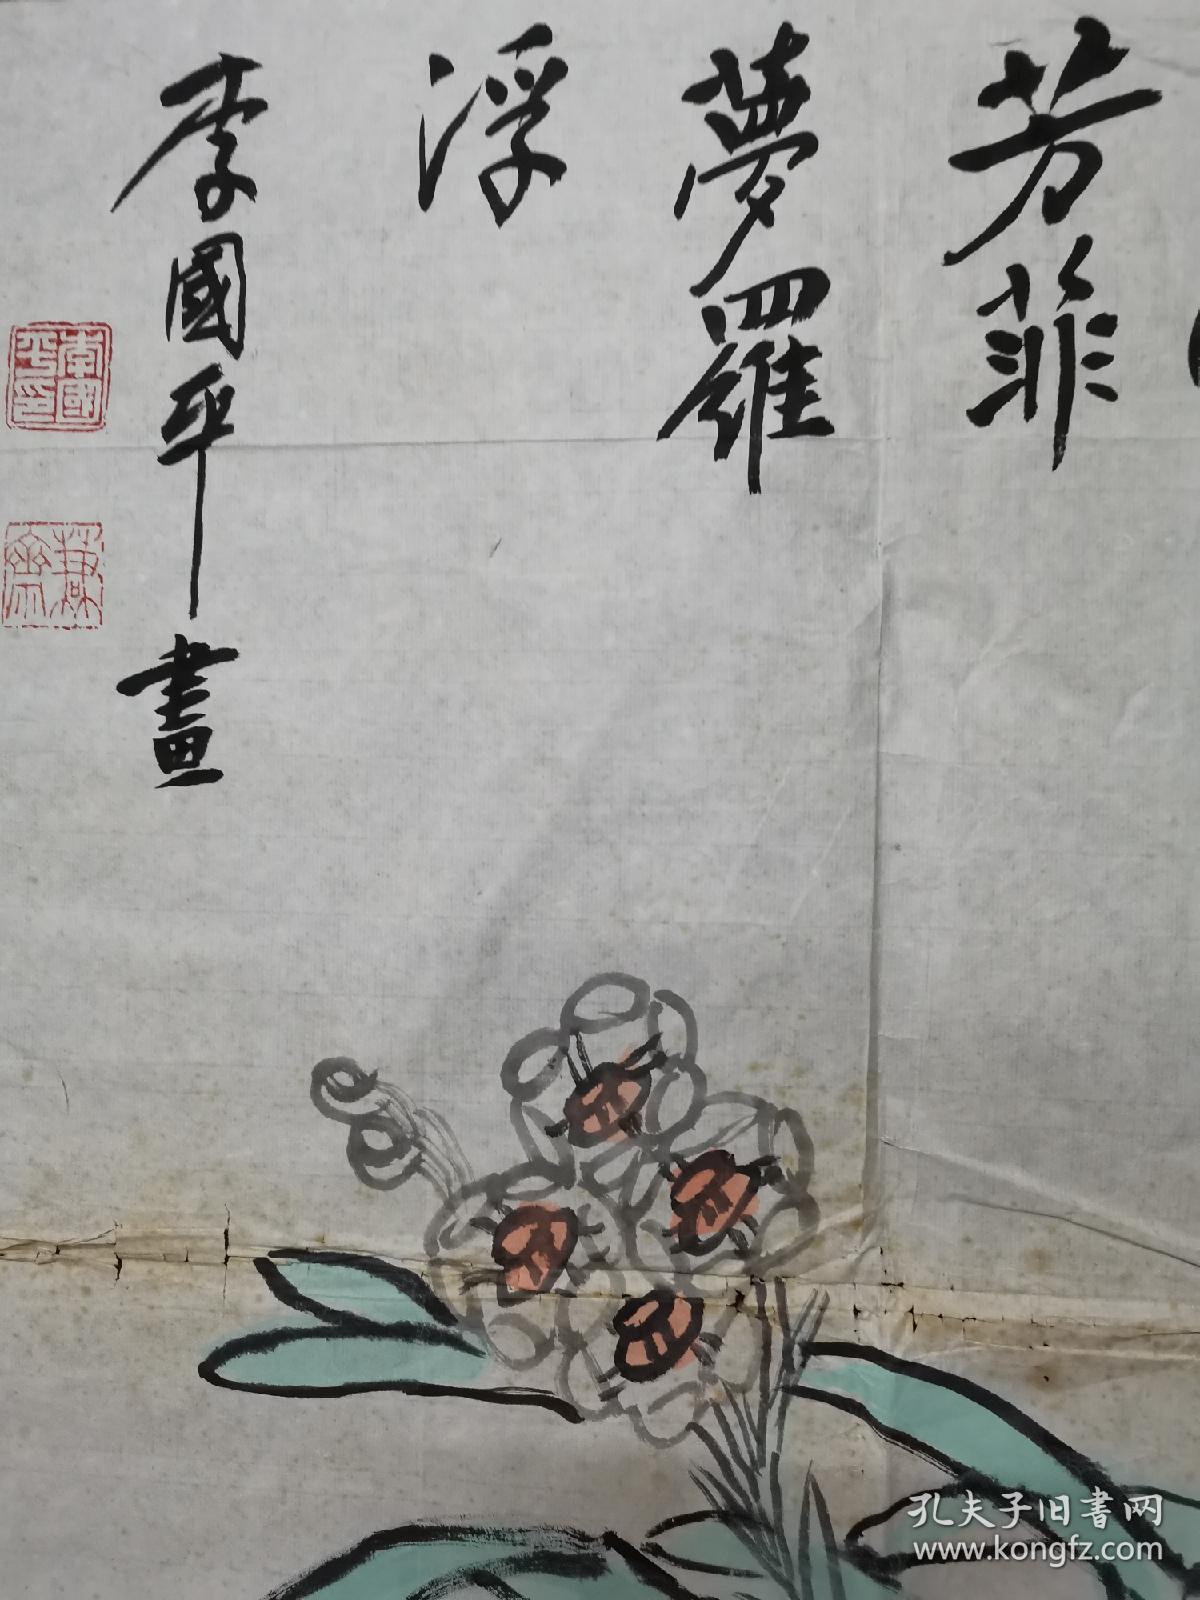 芳菲
夢羅
浮
李國平畫
李國
平印
孔夫子旧書网
www.kongfz.com